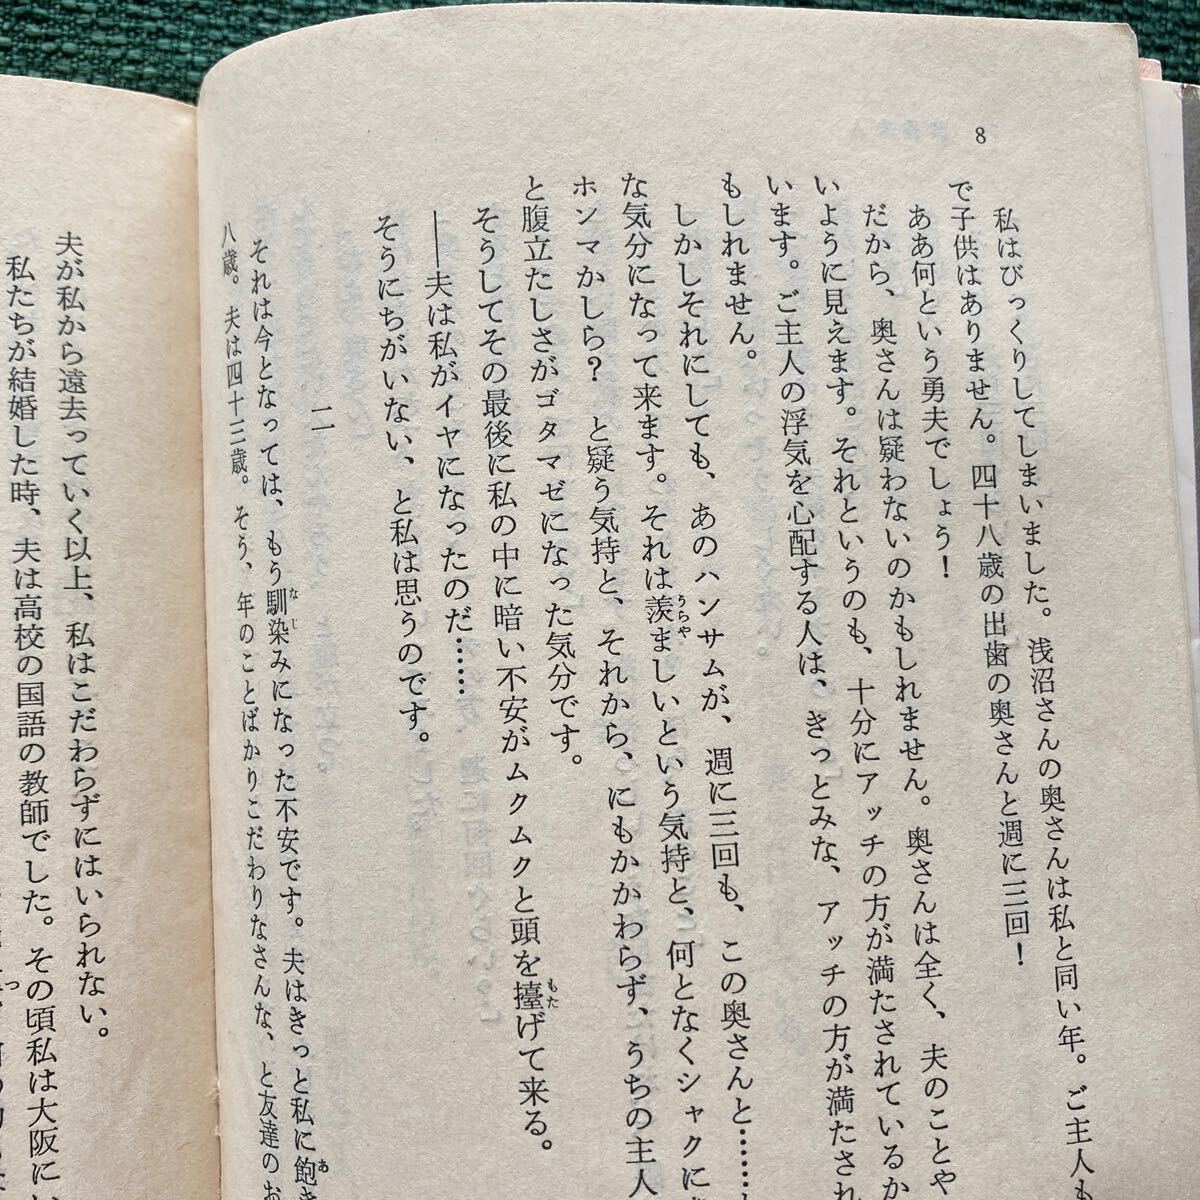 8
私はびっくりしてしまいました。浅沼さんの奥さんは私と同い年。ご主人も
で子供はありません。四十八歳の出歯の奥さんと週に三回！
ああ何という勇夫でしょう！
だから、奥さんは疑わないのかもしれません。奥さんは全く、夫のことや
いように見えます。それというのも、十分にアッチの方が満たされているか
います。ご主人の浮気を心配する人は、きっとみな、アッチの方が満たされ
もしれません。
しかしそれにしても、あのハンサムが、週に三回も、この奥さんと……
な気分になって来ます。それは羨ましいという気持と、何となくシャクに
ホンマかしら？　と疑う気持と、それから、にもかかわらず、うちの主人
と腹立たしさがゴタマゼになった気分です。
そうしてその最後に私の中に暗い不安がムクムクと頭を擡げて来る。
――夫は私がイヤになったのだ……
そうにちがいない、と私は思うのです。
二
それは今となっては、もう馴染みになった不安です。夫はきっと私に飽き
八歳。夫は四十三歳。そう、年のことばかりこだわりなさんな、と友達のお
夫が私から遠去っていく以上、私はこだわらずにはいられない。
私たちが結婚した時、夫は高校の国語の教師でした。その頃私は大阪に